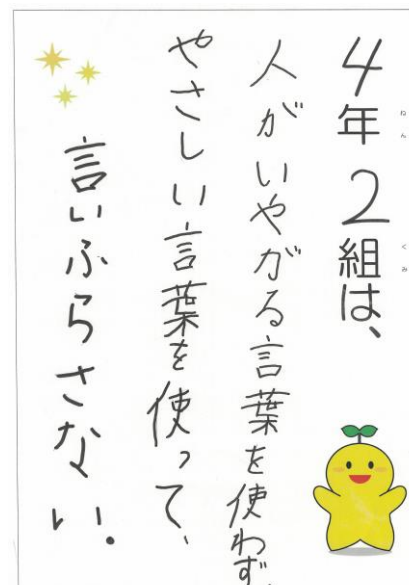 4年2組は、
人がいやがる言葉を使わず、
やさしい言葉を使って、
言いふらさない。